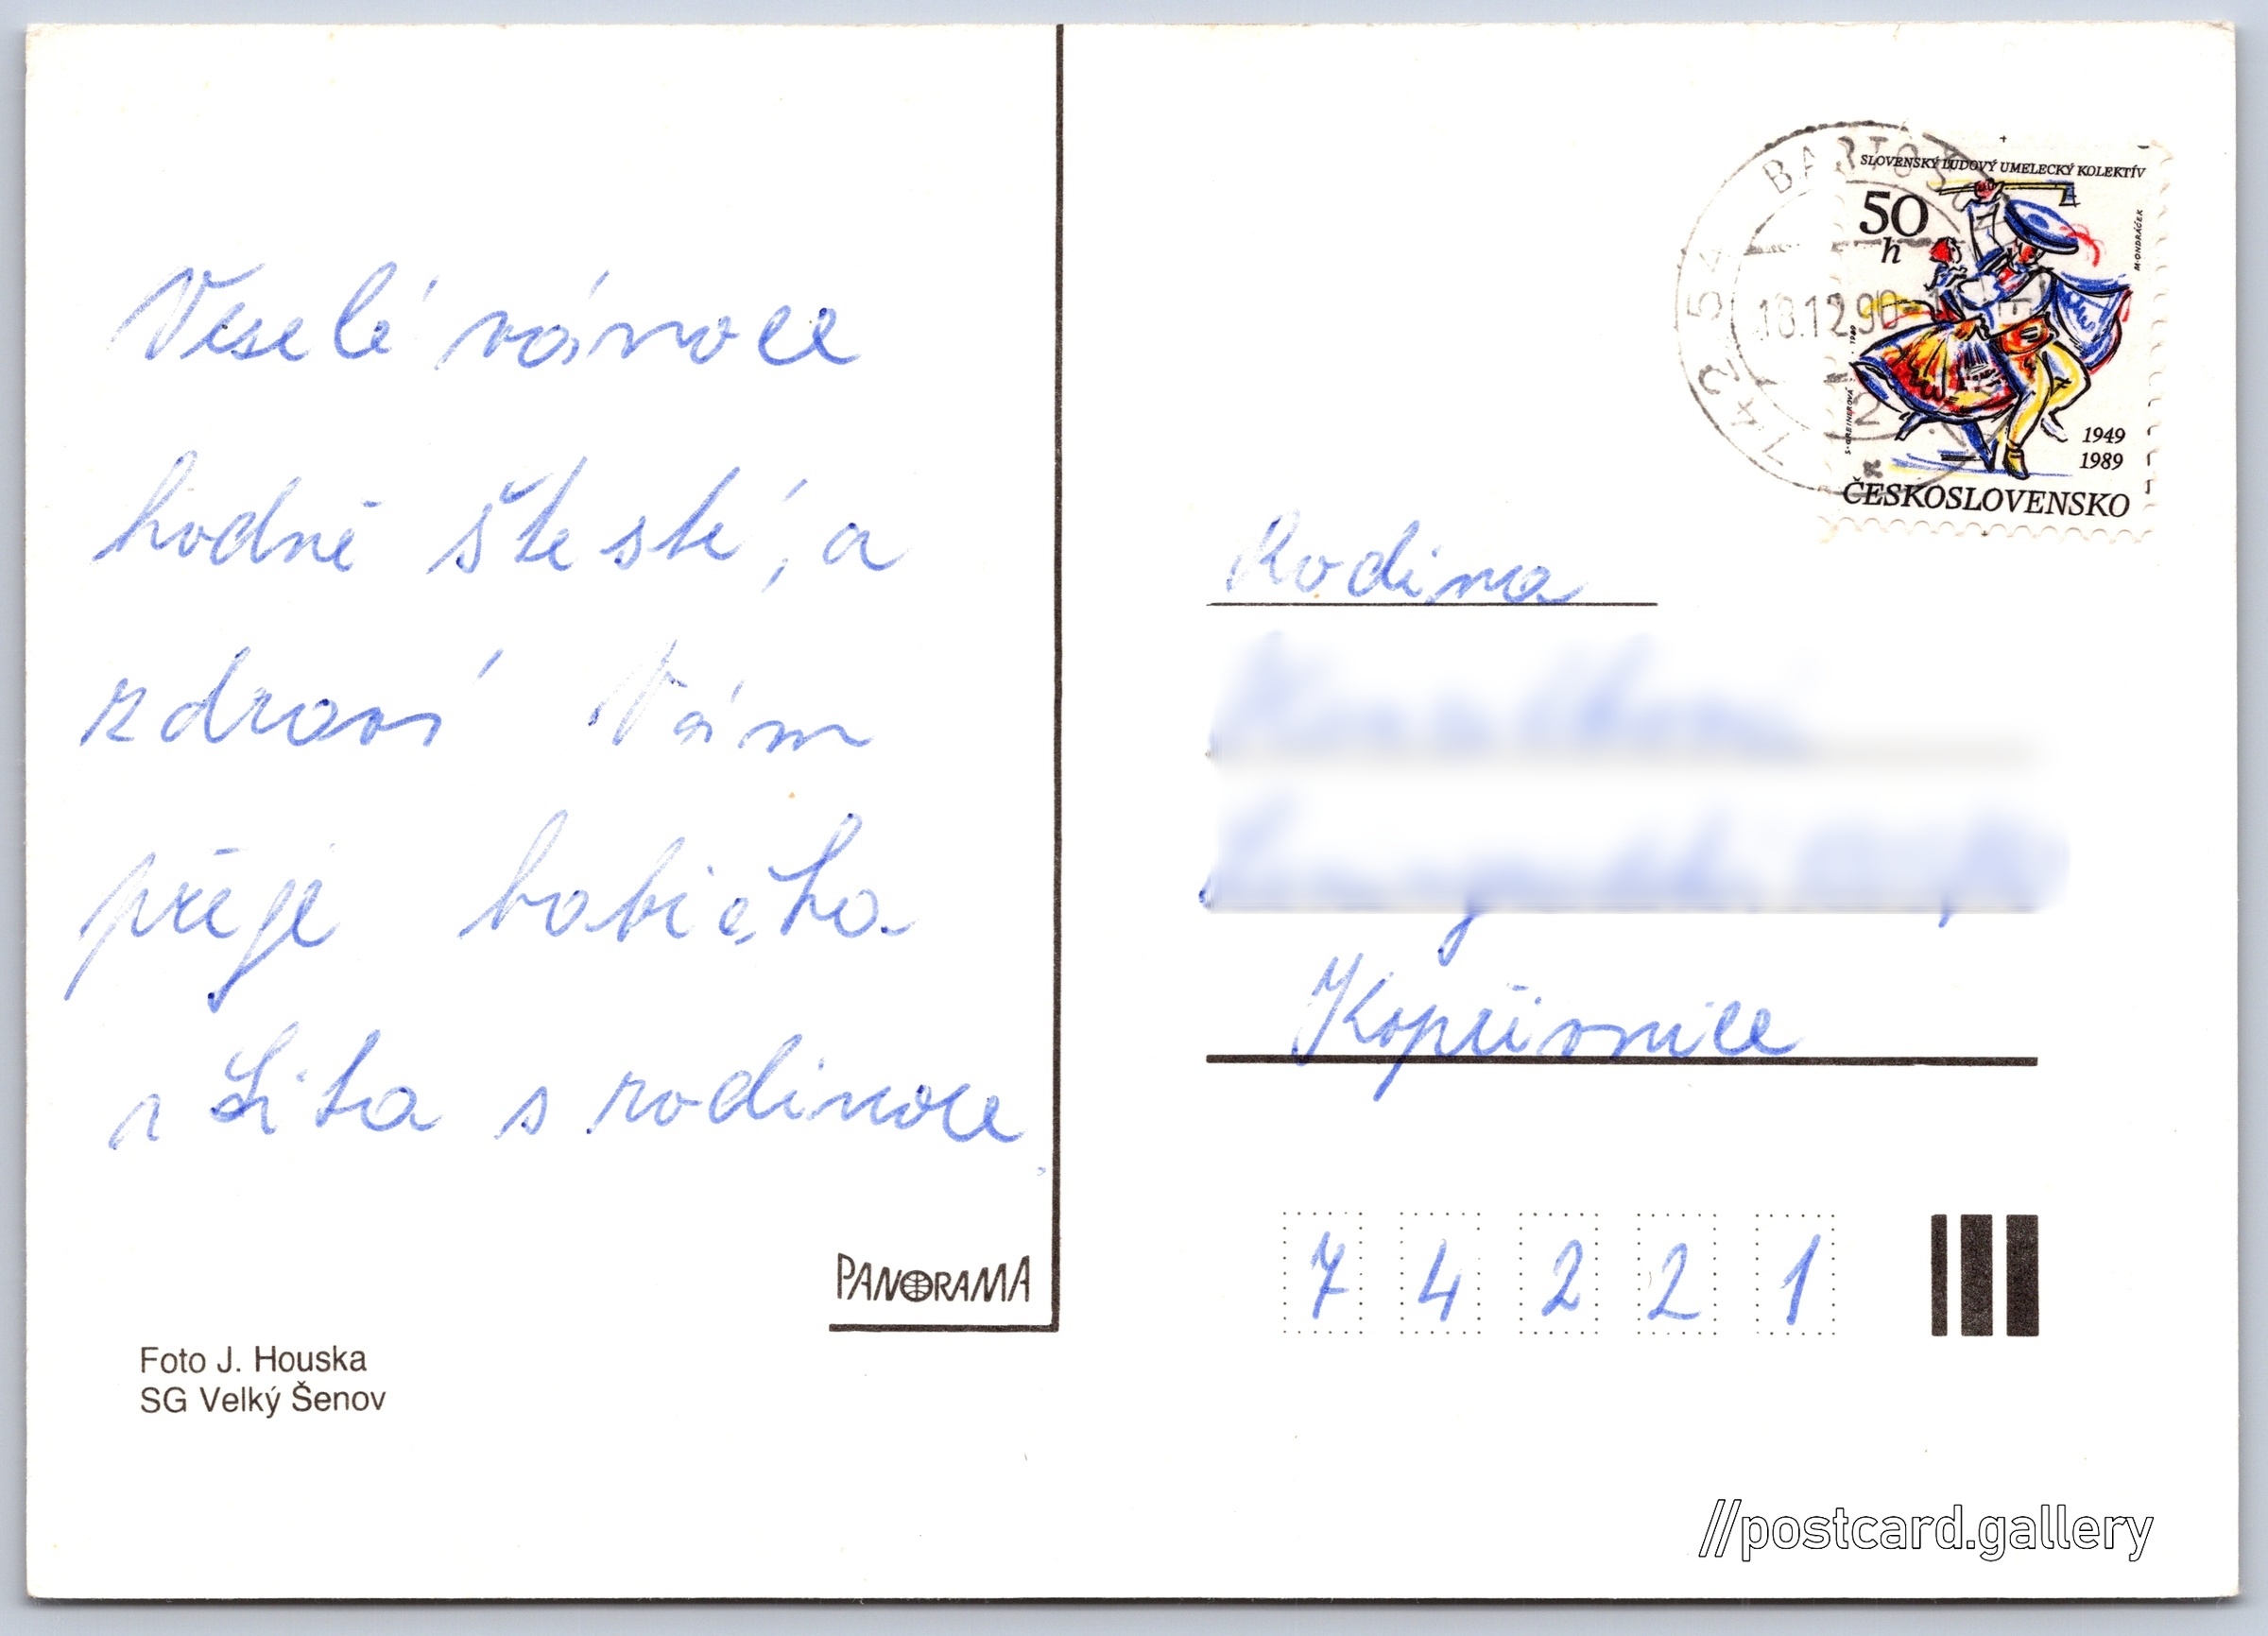 Veselé vánoce
hodně štesté, a
zdraví Vám
přeje babička
a Lida s rodinoce
PANORAMA
Foto J. Houska
SG Velký Šenov
BARTOŠ
742 54
18.12.90
SLOVENSKÝ ĽUDOVÝ UMELECKÝ KOLEKTÍV
50
h
M·ONDRÁČEK
S·GREINEROVÁ · 1989
1949
1989
ČESKOSLOVENSKO
Rodina
Kopřivnice
7 4 2 2 1
//postcard.gallery